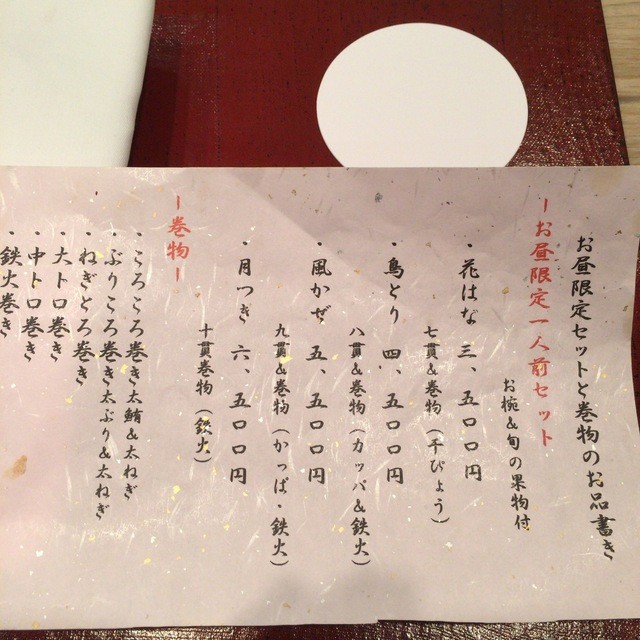 お昼限定セットと巻物のお品書き
ーお昼限定一人前セット
お椀&旬の果物付
・花はな 三、五〇〇円
七貫&巻物(干ぴょう)
・鳥とり 四、五〇〇円
八貫&巻物(カッパ&鉄火)
・風かぜ 五、五〇〇円
九貫&巻物(かっぱ・鉄火)
・月つき 六、五〇〇円
十貫巻物(鉄火)
ー巻物ー
・ころころ巻き太鮪&太ねぎ
・ぶりころ巻き太ぶり&太ねぎ
・ねぎとろ巻き
・大トロ巻き
・中トロ巻き
・鉄火巻き